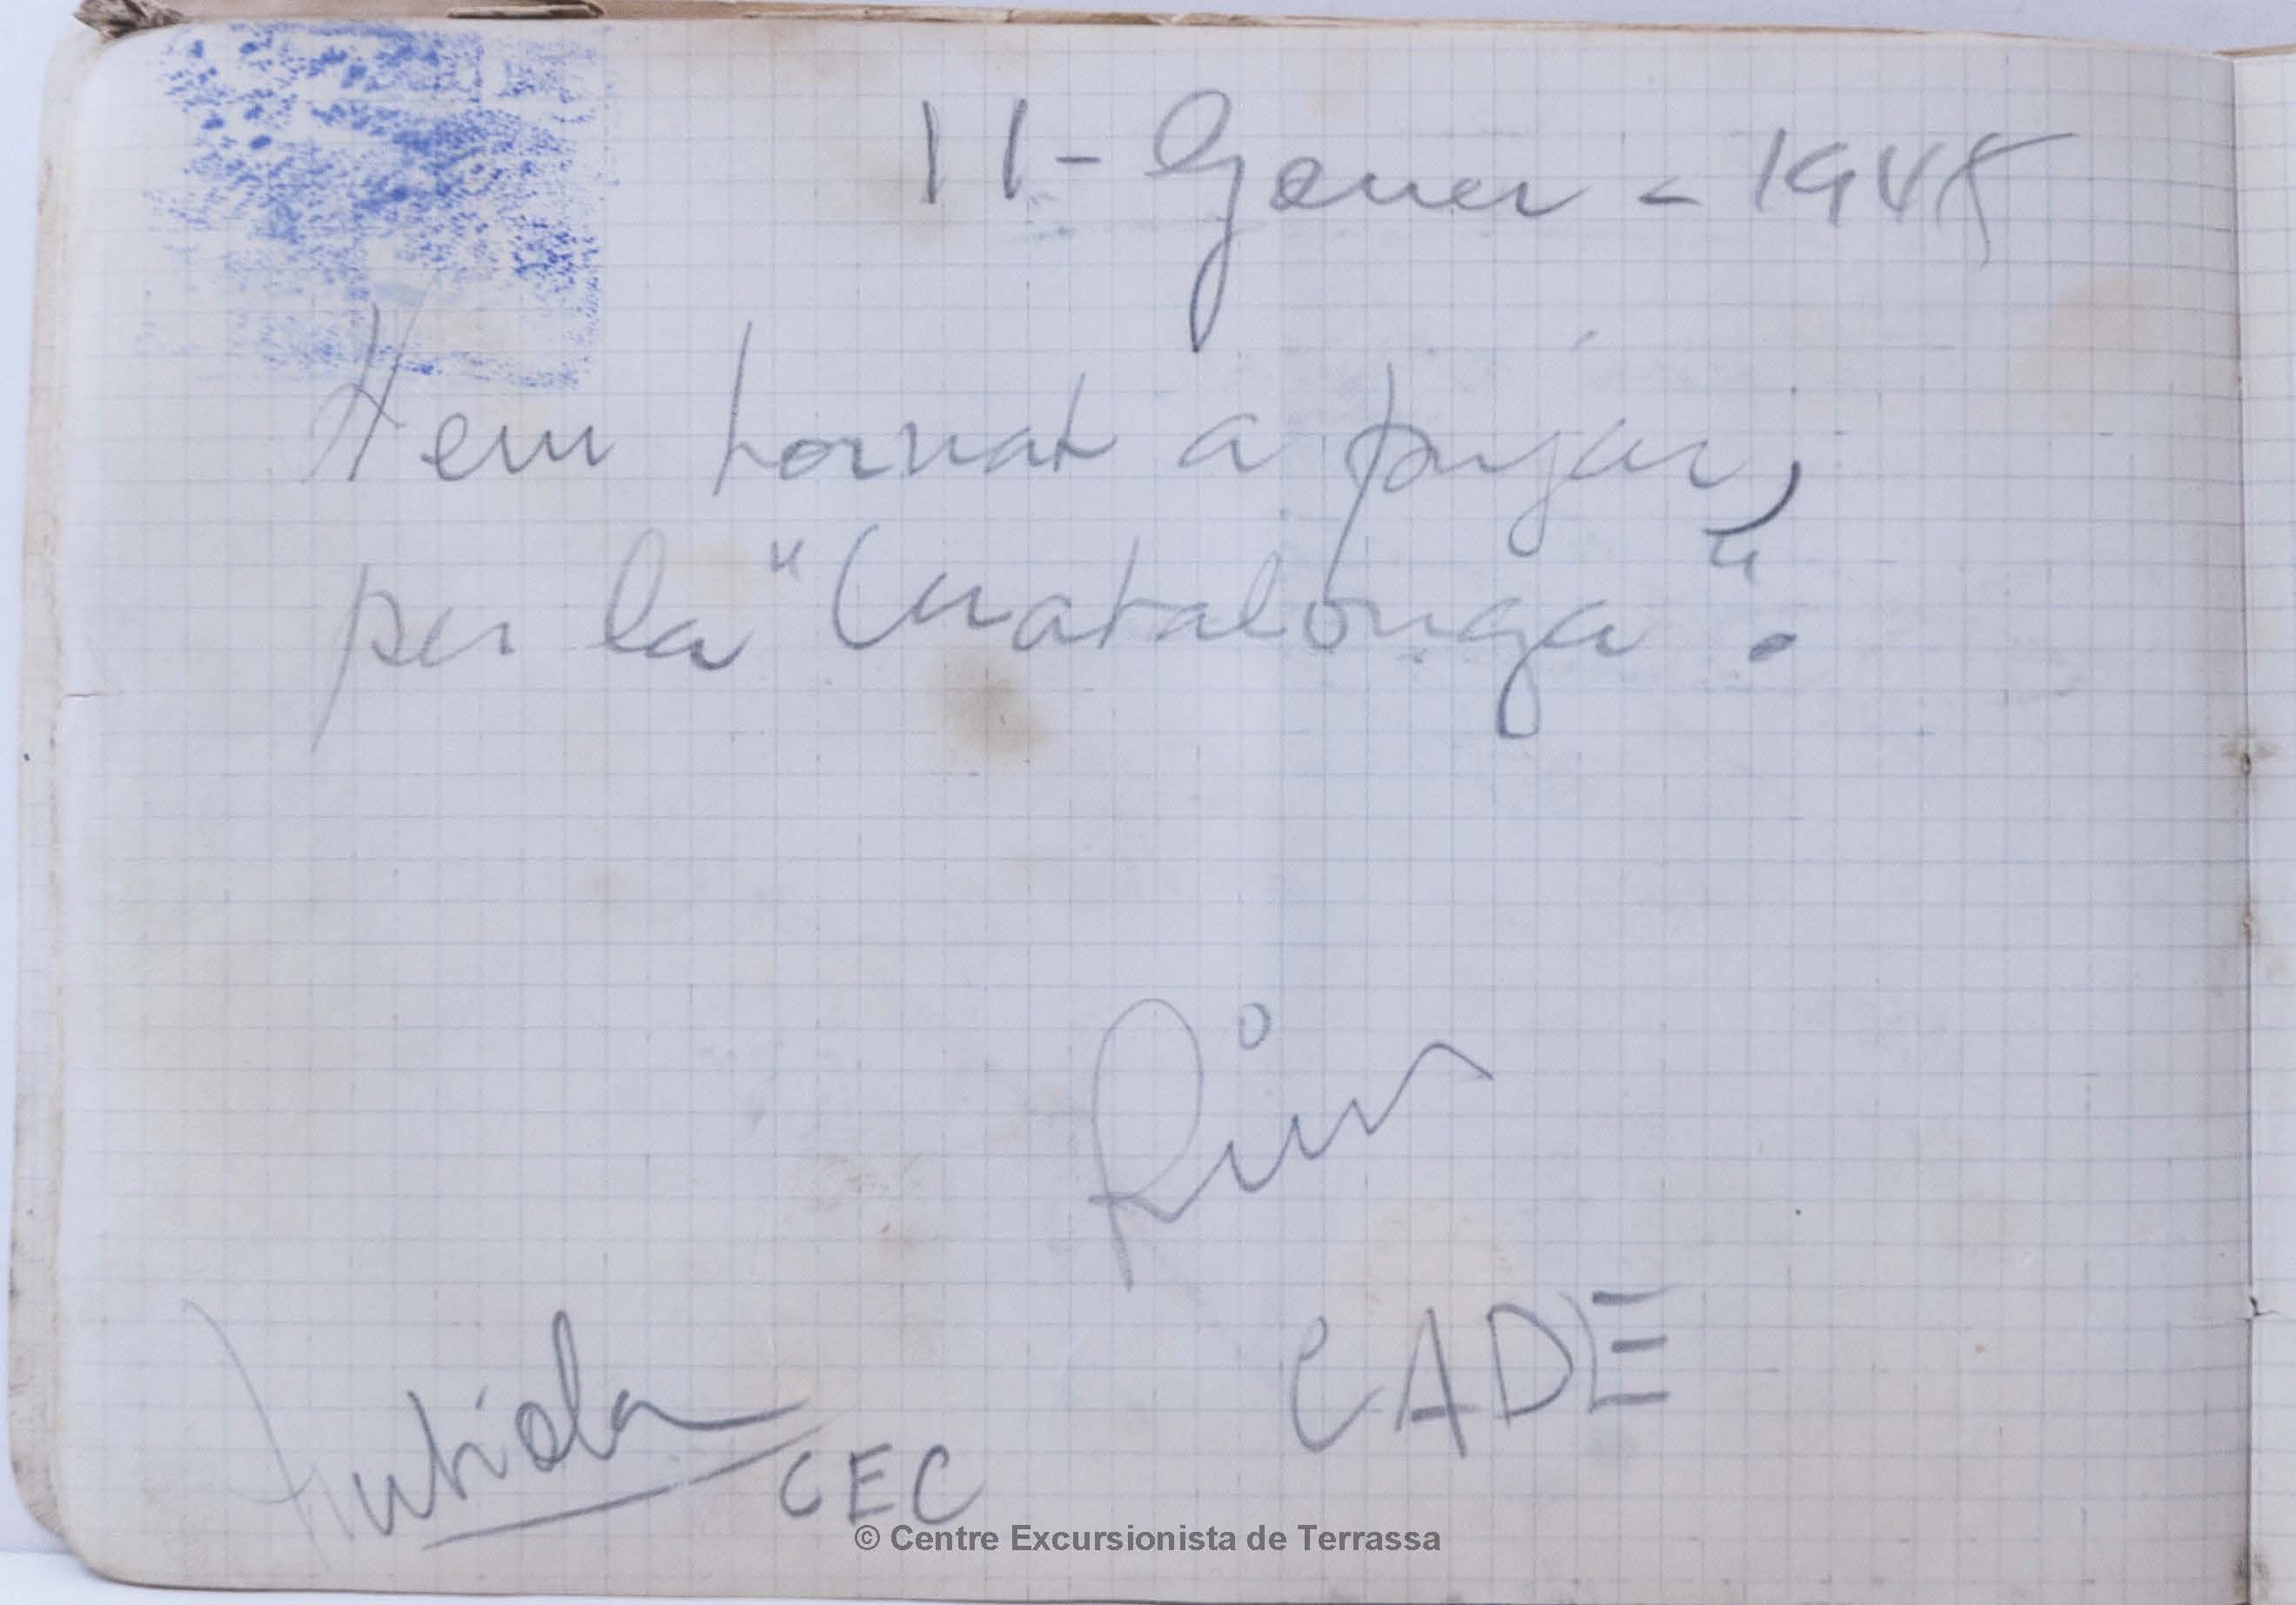 11 - Gener - 1948
Hem tornat a pujar,
per la "Cuatalonga".
Rius
CADE
CEC
© Centre Excursionista de Terrassa